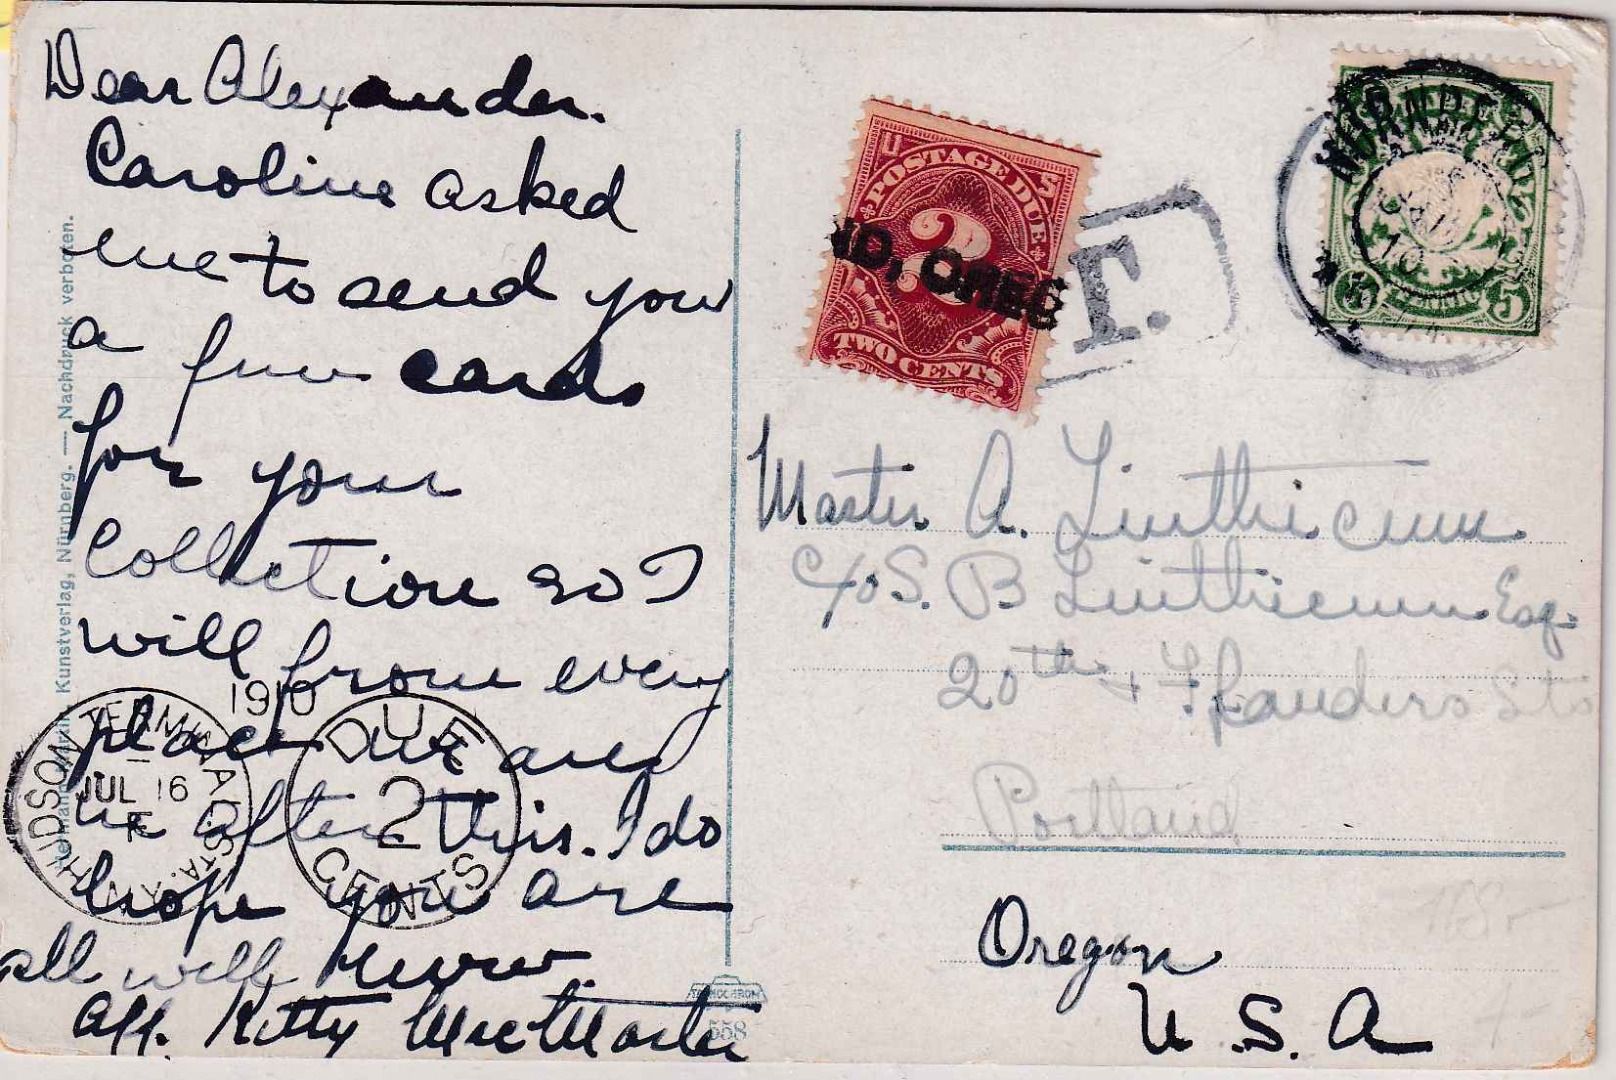 Dear Alexander.
Caroline asked
me to send you
a few cards
for your
Collection so I
will from every
place we are
in after this. I do
hope you are
all well now.
Aff. Kitty MacMaster
Hermann Martin, Kunstverlag, Nürnberg. — Nachdruck verboten.
HUDSON TERMINAL STA. N.Y.
JUL 16
1910
DUE
2
CENTS
U.S.
POSTAGE DUE
2
TWO CENTS
ND, OREG
T.
5
5
Master A. Linthicum
c/o S. B Linthicum Esq.
20th & Flanders Sts
Portland
Oregon
U.S.A
558